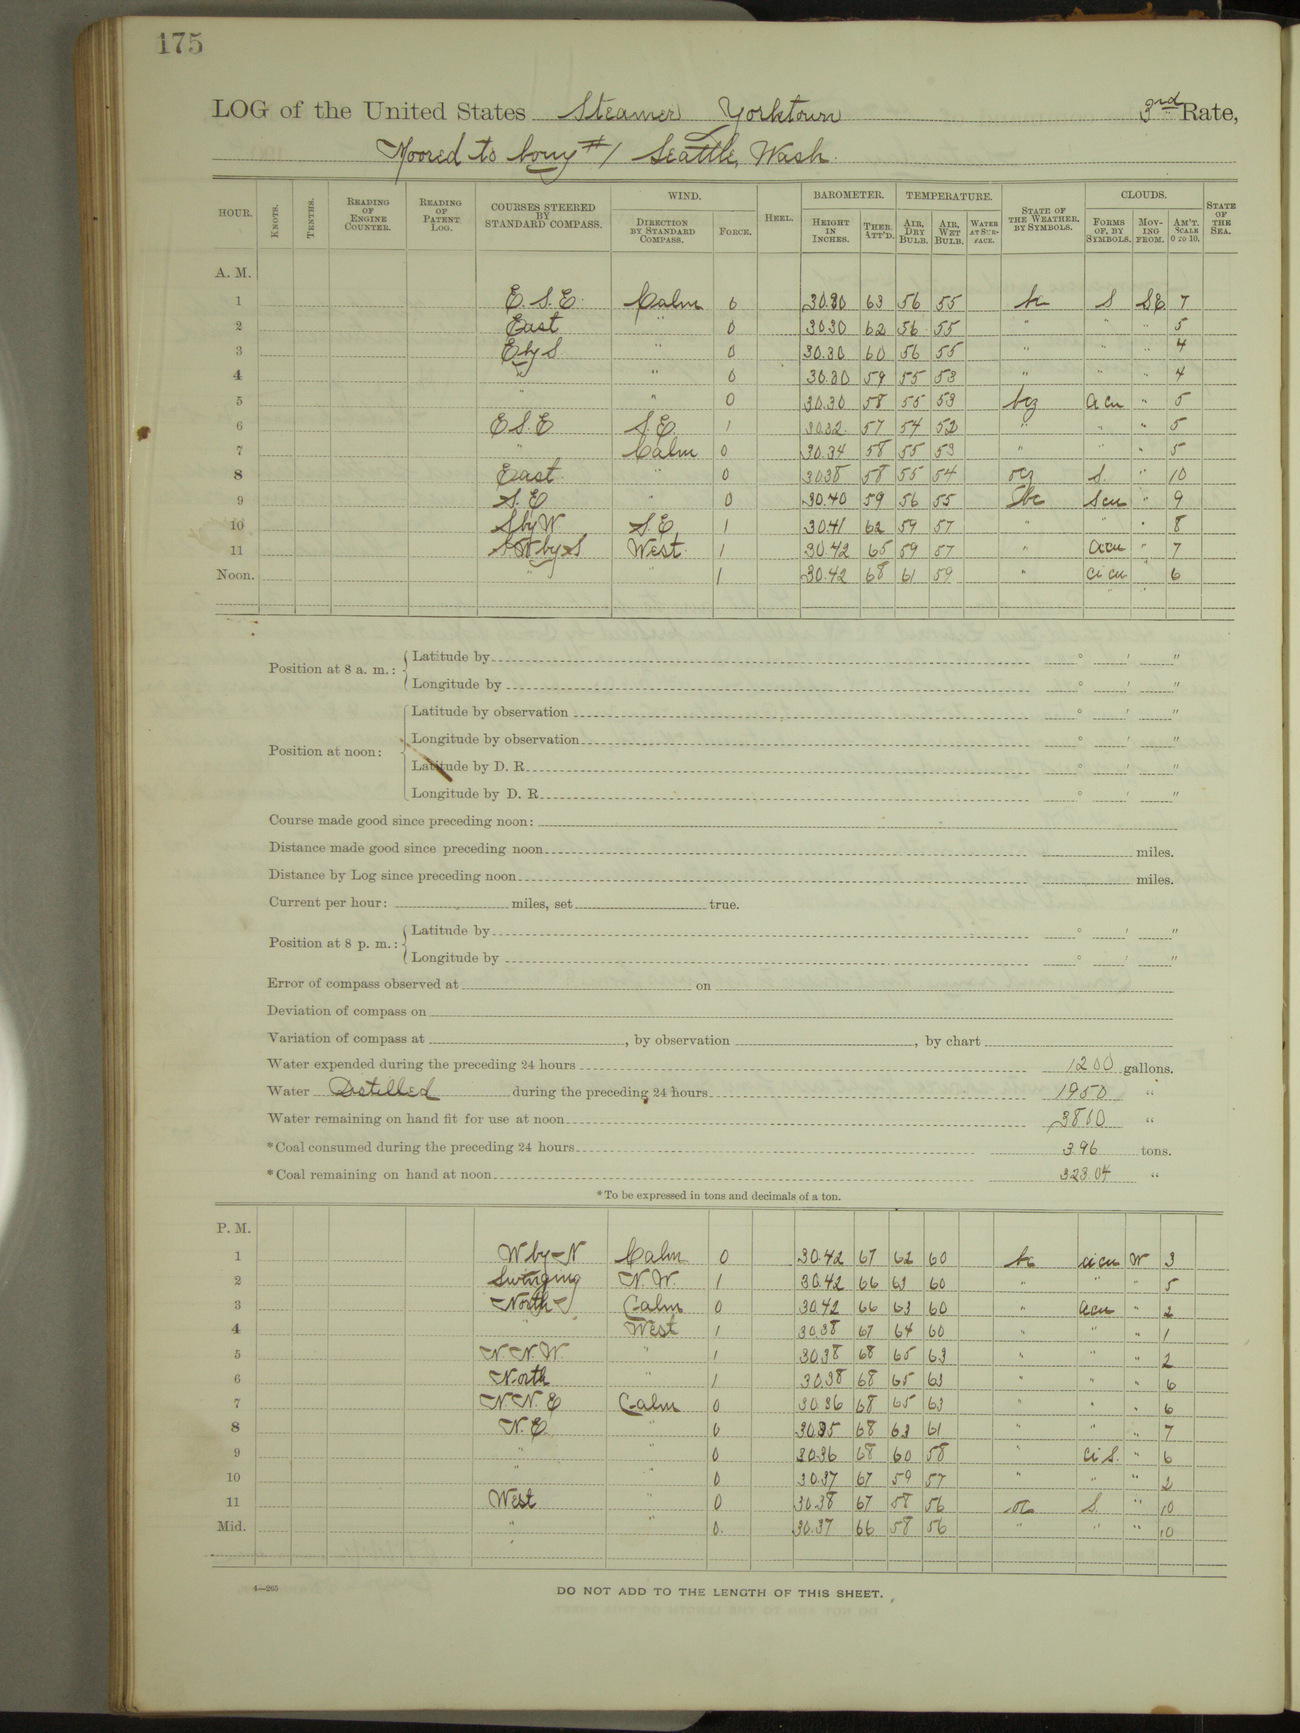 175
LOG of the United States Steamer Yorktown 3rd Rate,
Moored to bouy #1 Seattle, Wash.
HOUR. KNOTS. TENTHS. READING OF ENGINE COUNTER. READING OF PATENT LOG. COURSES STEERED BY STANDARD COMPASS. WIND. DIRECTION BY STANDARD COMPASS. FORCE. HEEL. BAROMETER. HEIGHT IN INCHES. THER. ATT'D. TEMPERATURE. AIR, DRY BULB. AIR, WET BULB. WATER AT SUR-FACE. STATE OF THE WEATHER, BY SYMBOLS. CLOUDS. FORMS OF, BY SYMBOLS. MOV-ING FROM. AM'T. SCALE 0 TO 10. STATE OF THE SEA.
A. M.
1 E. S. E. Calm 0 30.30 63 56 55 bc S SE 7
2 East " 0 30.30 62 56 55 " " " 5
3 E by S. " 0 30.30 60 56 55 " " " 4
4 " " 0 30.30 59 55 53 " " " 4
5 " " 0 30.30 58 55 53 bcz acu " 5
6 E S. E S.E. 1 30.32 57 54 52 " " " 5
7 " Calm 0 30.34 58 55 53 " " " 5
8 East " 0 30.38 58 55 54 ocz S. " 10
9 S. E " 0 30.40 59 56 55 bc Scu " 9
10 S by W. S.E. 1 30.41 62 59 57 " " " 8
11 SW by S West. 1 30.42 65 59 57 " acu " 7
Noon. " " 1 30.42 68 61 59 " ci cu " 6
Position at 8 a. m.: Latitude by ° ' "
Longitude by ° ' "
Position at noon: Latitude by observation ° ' "
Longitude by observation ° ' "
Latitude by D. R. ° ' "
Longitude by D. R. ° ' "
Course made good since preceding noon:
Distance made good since preceding noon miles.
Distance by Log since preceding noon miles.
Current per hour: miles, set true.
Position at 8 p. m.: Latitude by ° ' "
Longitude by ° ' "
Error of compass observed at on
Deviation of compass on
Variation of compass at , by observation , by chart
Water expended during the preceding 24 hours 1200 gallons.
Water Distilled during the preceding 24 hours 1950 "
Water remaining on hand fit for use at noon 3810 "
*Coal consumed during the preceding 24 hours 3.96 tons.
*Coal remaining on hand at noon 323.04 "
*To be expressed in tons and decimals of a ton.
P. M.
1 W by N Calm 0 30.42 67 62 60 bc ci cu W 3
2 Swinging N. W. 1 30.42 66 63 60 " " " 5
3 North Calm 0 30.42 66 63 60 " acu " 2
4 " West 1 30.38 67 64 60 " " " 1
5 N. N. W. " 1 30.38 68 65 63 " " " 2
6 North " 1 30.38 68 65 63 " " " 6
7 N. N. E Calm 0 30.36 68 65 63 " " " 6
8 N. E. " 0 30.35 68 63 61 " " " 7
9 " " 0 30.36 68 60 58 " ci S. " 6
10 " " 0 30.37 67 59 57 " " " 2
11 West " 0 30.38 67 58 56 oc S. " 10
Mid. " " 0. 30.37 66 58 56 " " " 10
4—265
DO NOT ADD TO THE LENGTH OF THIS SHEET.